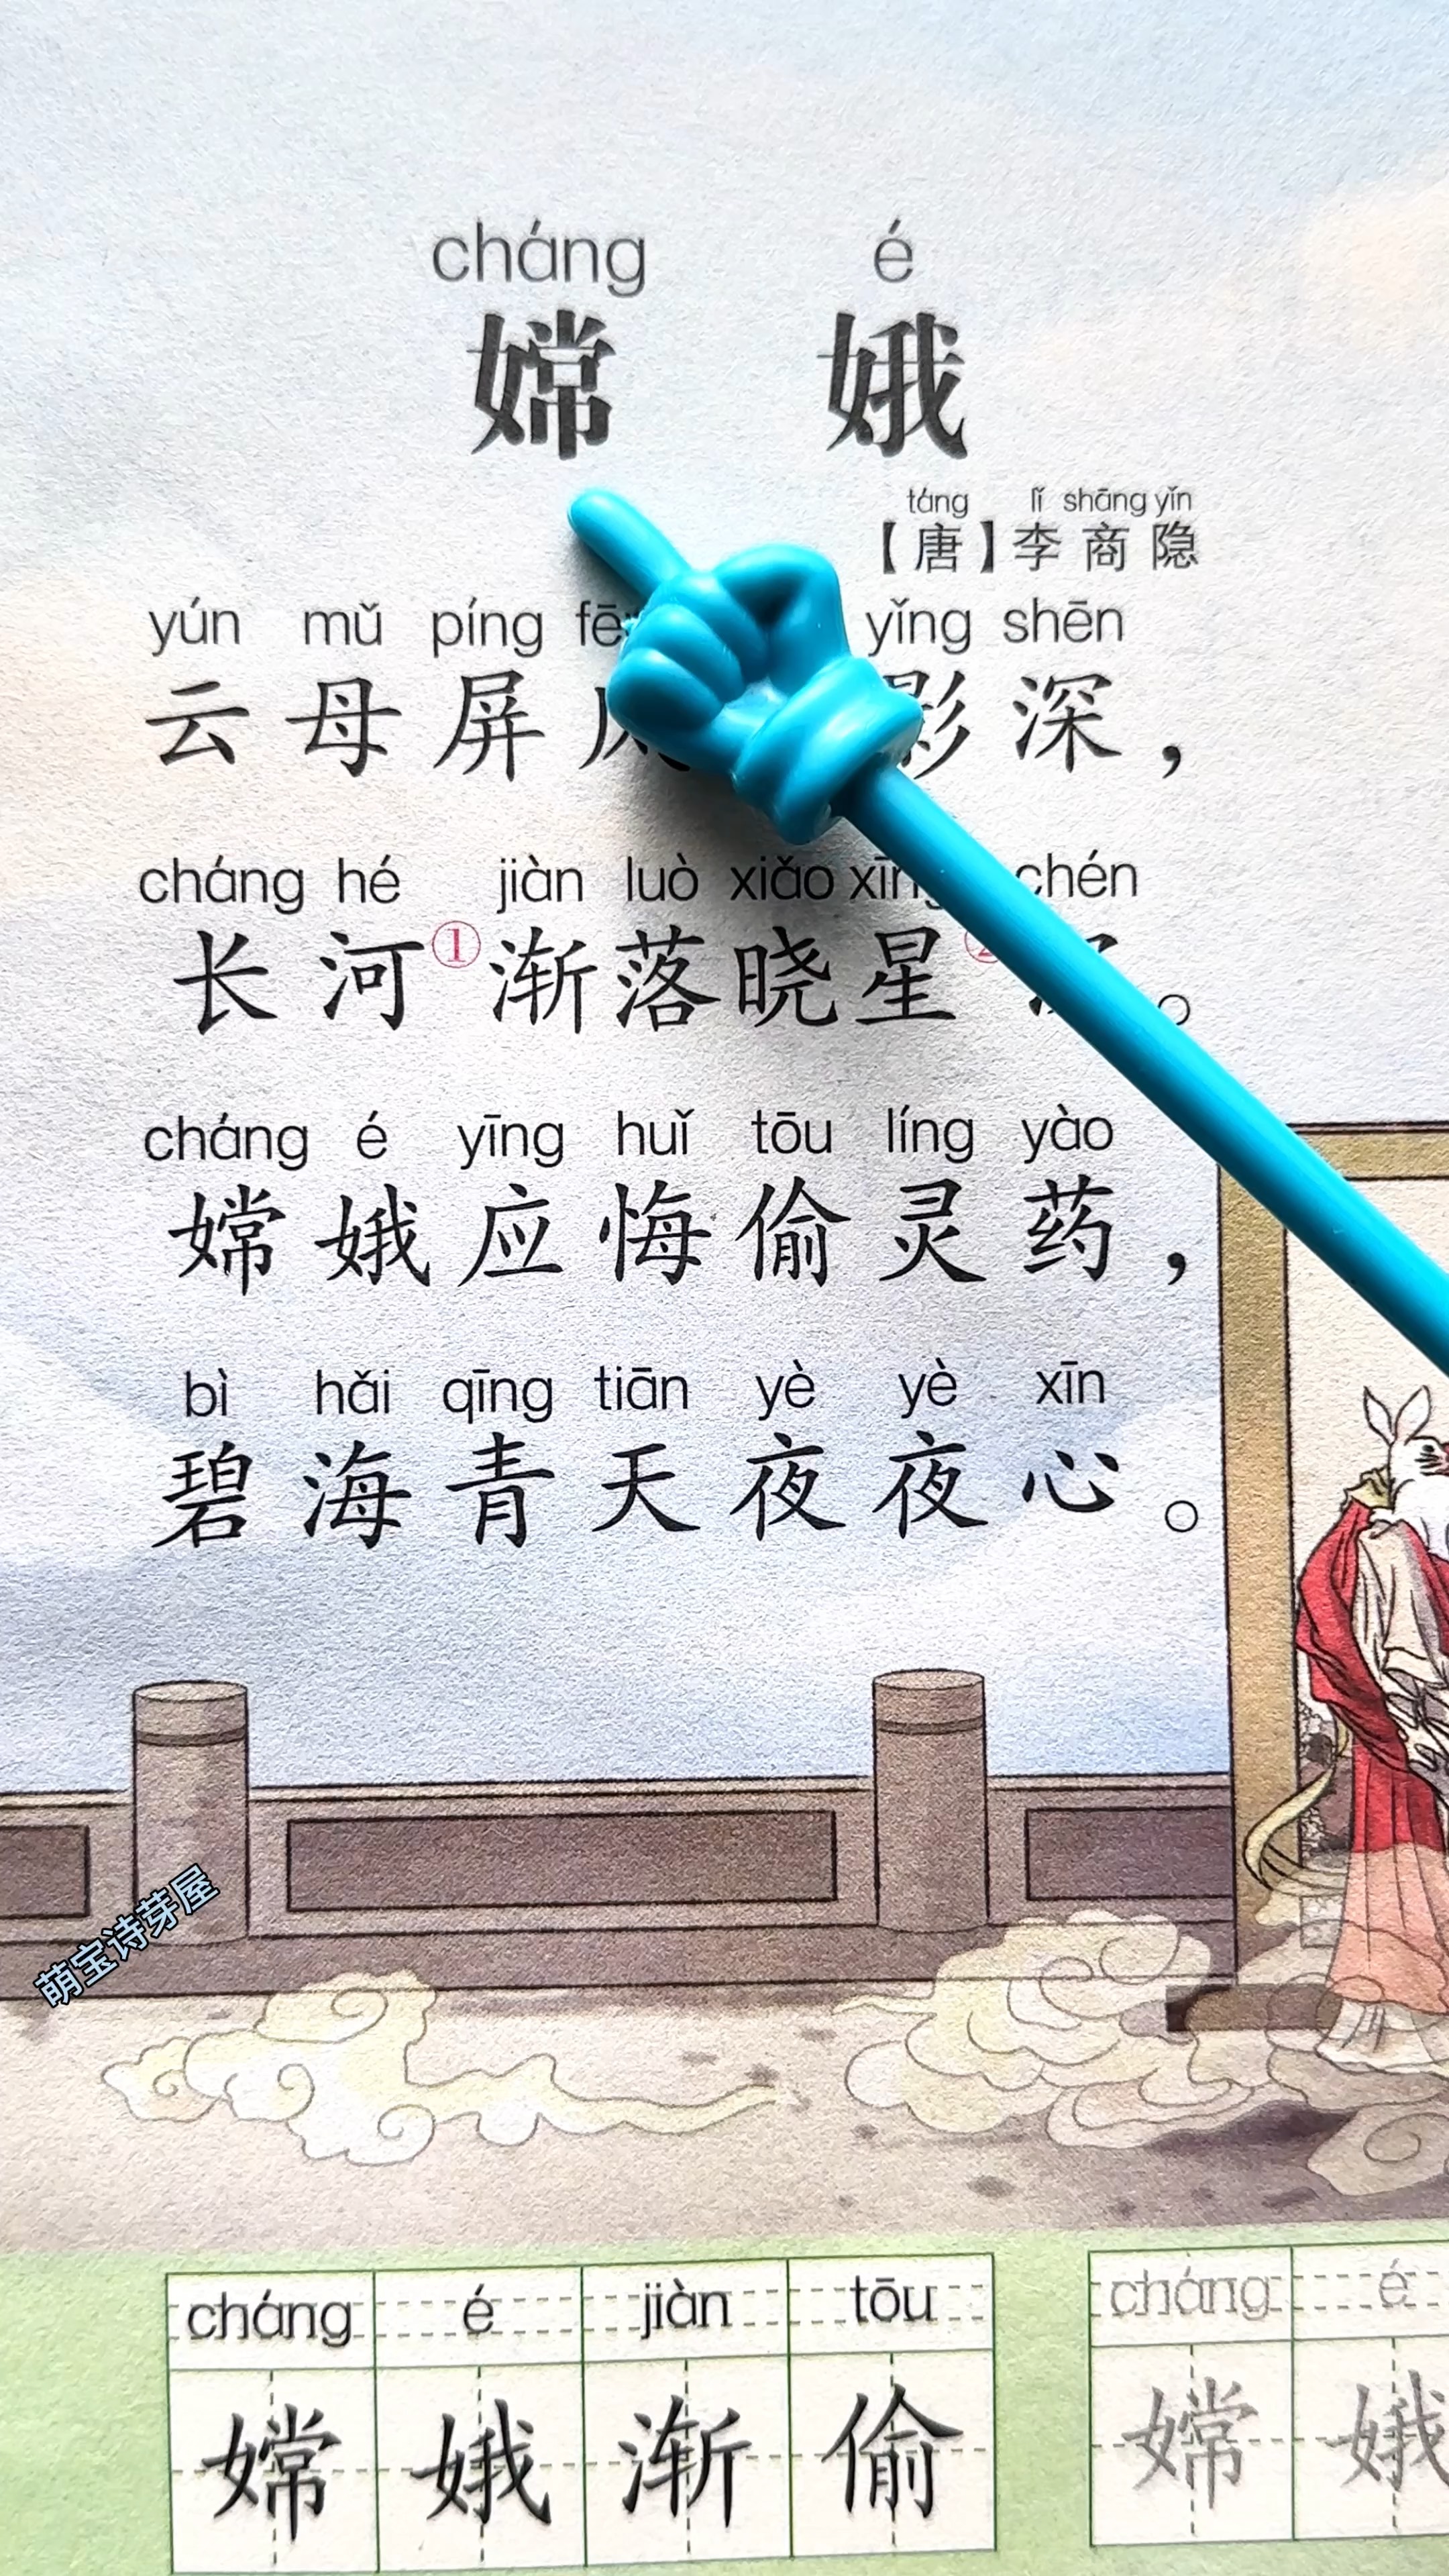 cháng é
嫦娥
táng lǐ shāng yǐn
【唐】李商隐
yún mǔ píng yǐng shēn
云母屏 影深，
cháng hé jiàn luò xiǎo chén
长河①渐落晓星 。
cháng é yīng huǐ tōu líng yào
嫦娥应悔偷灵药，
bì hǎi qīng tiān yè yè xīn
碧海青天夜夜心。
萌宝诗芽屋
cháng é jiàn tōu cháng é
嫦娥渐偷 嫦娥